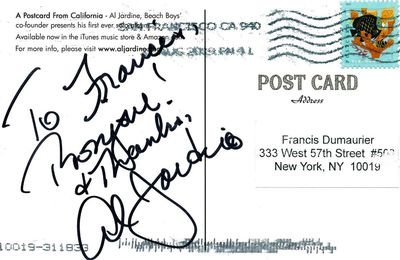 A Postcard From California - Al Jardine, Beach Boys'
co-founder presents his first ever
Available now in the iTunes music store & Amazon
For more info, please visit www.aljardine.
To Francis,
Bonjour
& Thanks,
Al Jardine
10019-311833
SAN FRANCISCO CA 940
PM 4 L
POST CARD
Address
Francis Dumaurier
333 West 57th Street
New York, NY 10019